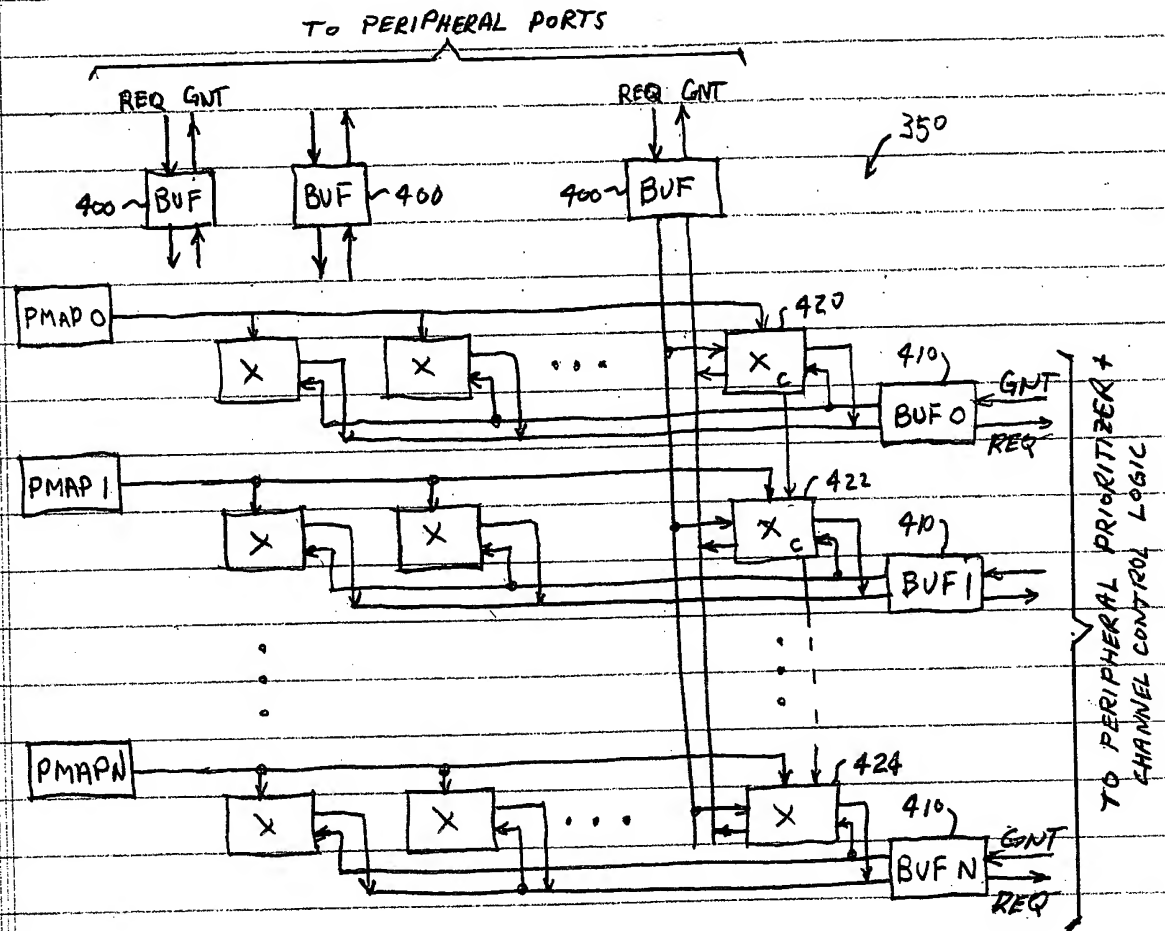 TO PERIPHERAL PORTS
REQ GNT
REQ GNT
350
400 BUF
BUF 400
400 BUF
PMAP 0
420
X
X
X C
410
GNT
BUF 0
REQ
PMAP 1
422
X
X
X C
410
BUF 1
PMAP N
424
X
X
X
410
GNT
BUF N
REQ
TO PERIPHERAL PRIORITIZER +
CHANNEL CONTROL LOGIC